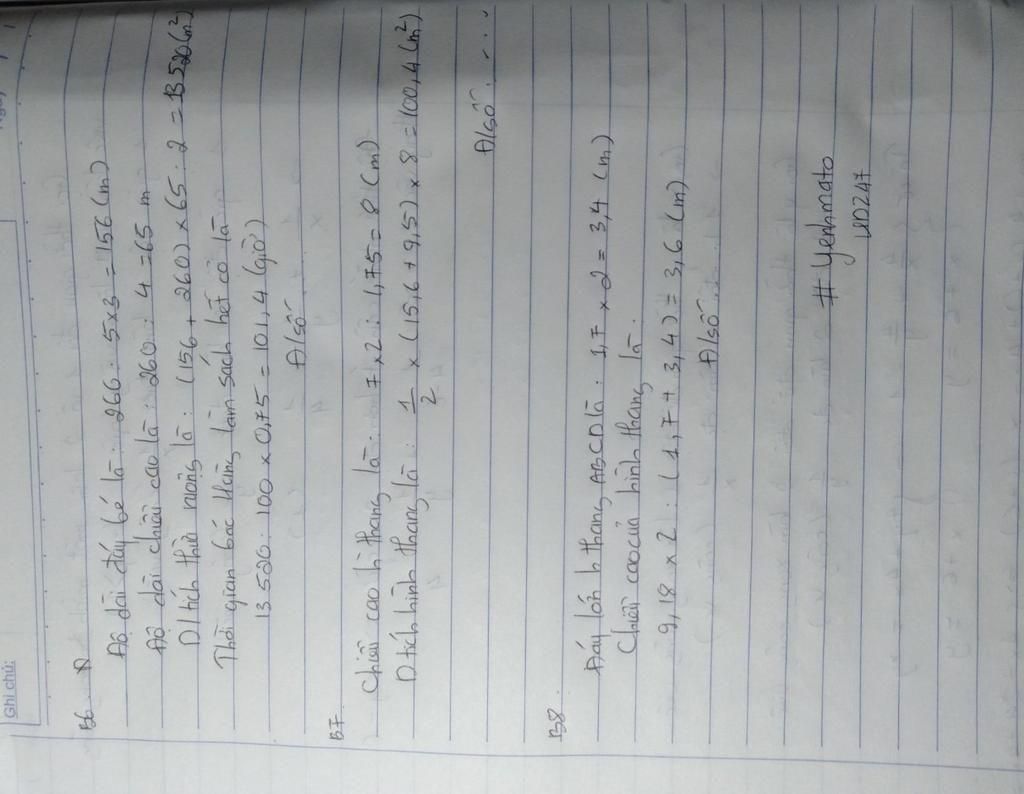 Ghi chú:
B6.
Độ dài đáy bé là: 266 : 5 x 3 = 156 (m)
Độ dài chiều cao là: 260 : 4 = 65 m
D tích thửa ruộng là: (156 + 260) x 65 : 2 = 13520 (m²)
Thời gian bác Hùng làm sạch hết cỏ là
13520 : 100 x 0,75 = 101,4 (giờ)
Đ/số
B7.
Chiều cao h thang là: 7 x 2 : 1,75 = 8 (m)
D tích hình thang là: 1/2 x (15,6 + 9,5) x 8 = 100,4 (m²)
Đ/số . . . .
B8.
Đáy lớn h thang ABCD là: 1,7 x 2 = 3,4 (m)
Chiều cao của hình thang là.
9,18 x 2 : (1,7 + 3,4) = 3,6 (m)
Đ/số
# Yenhmato